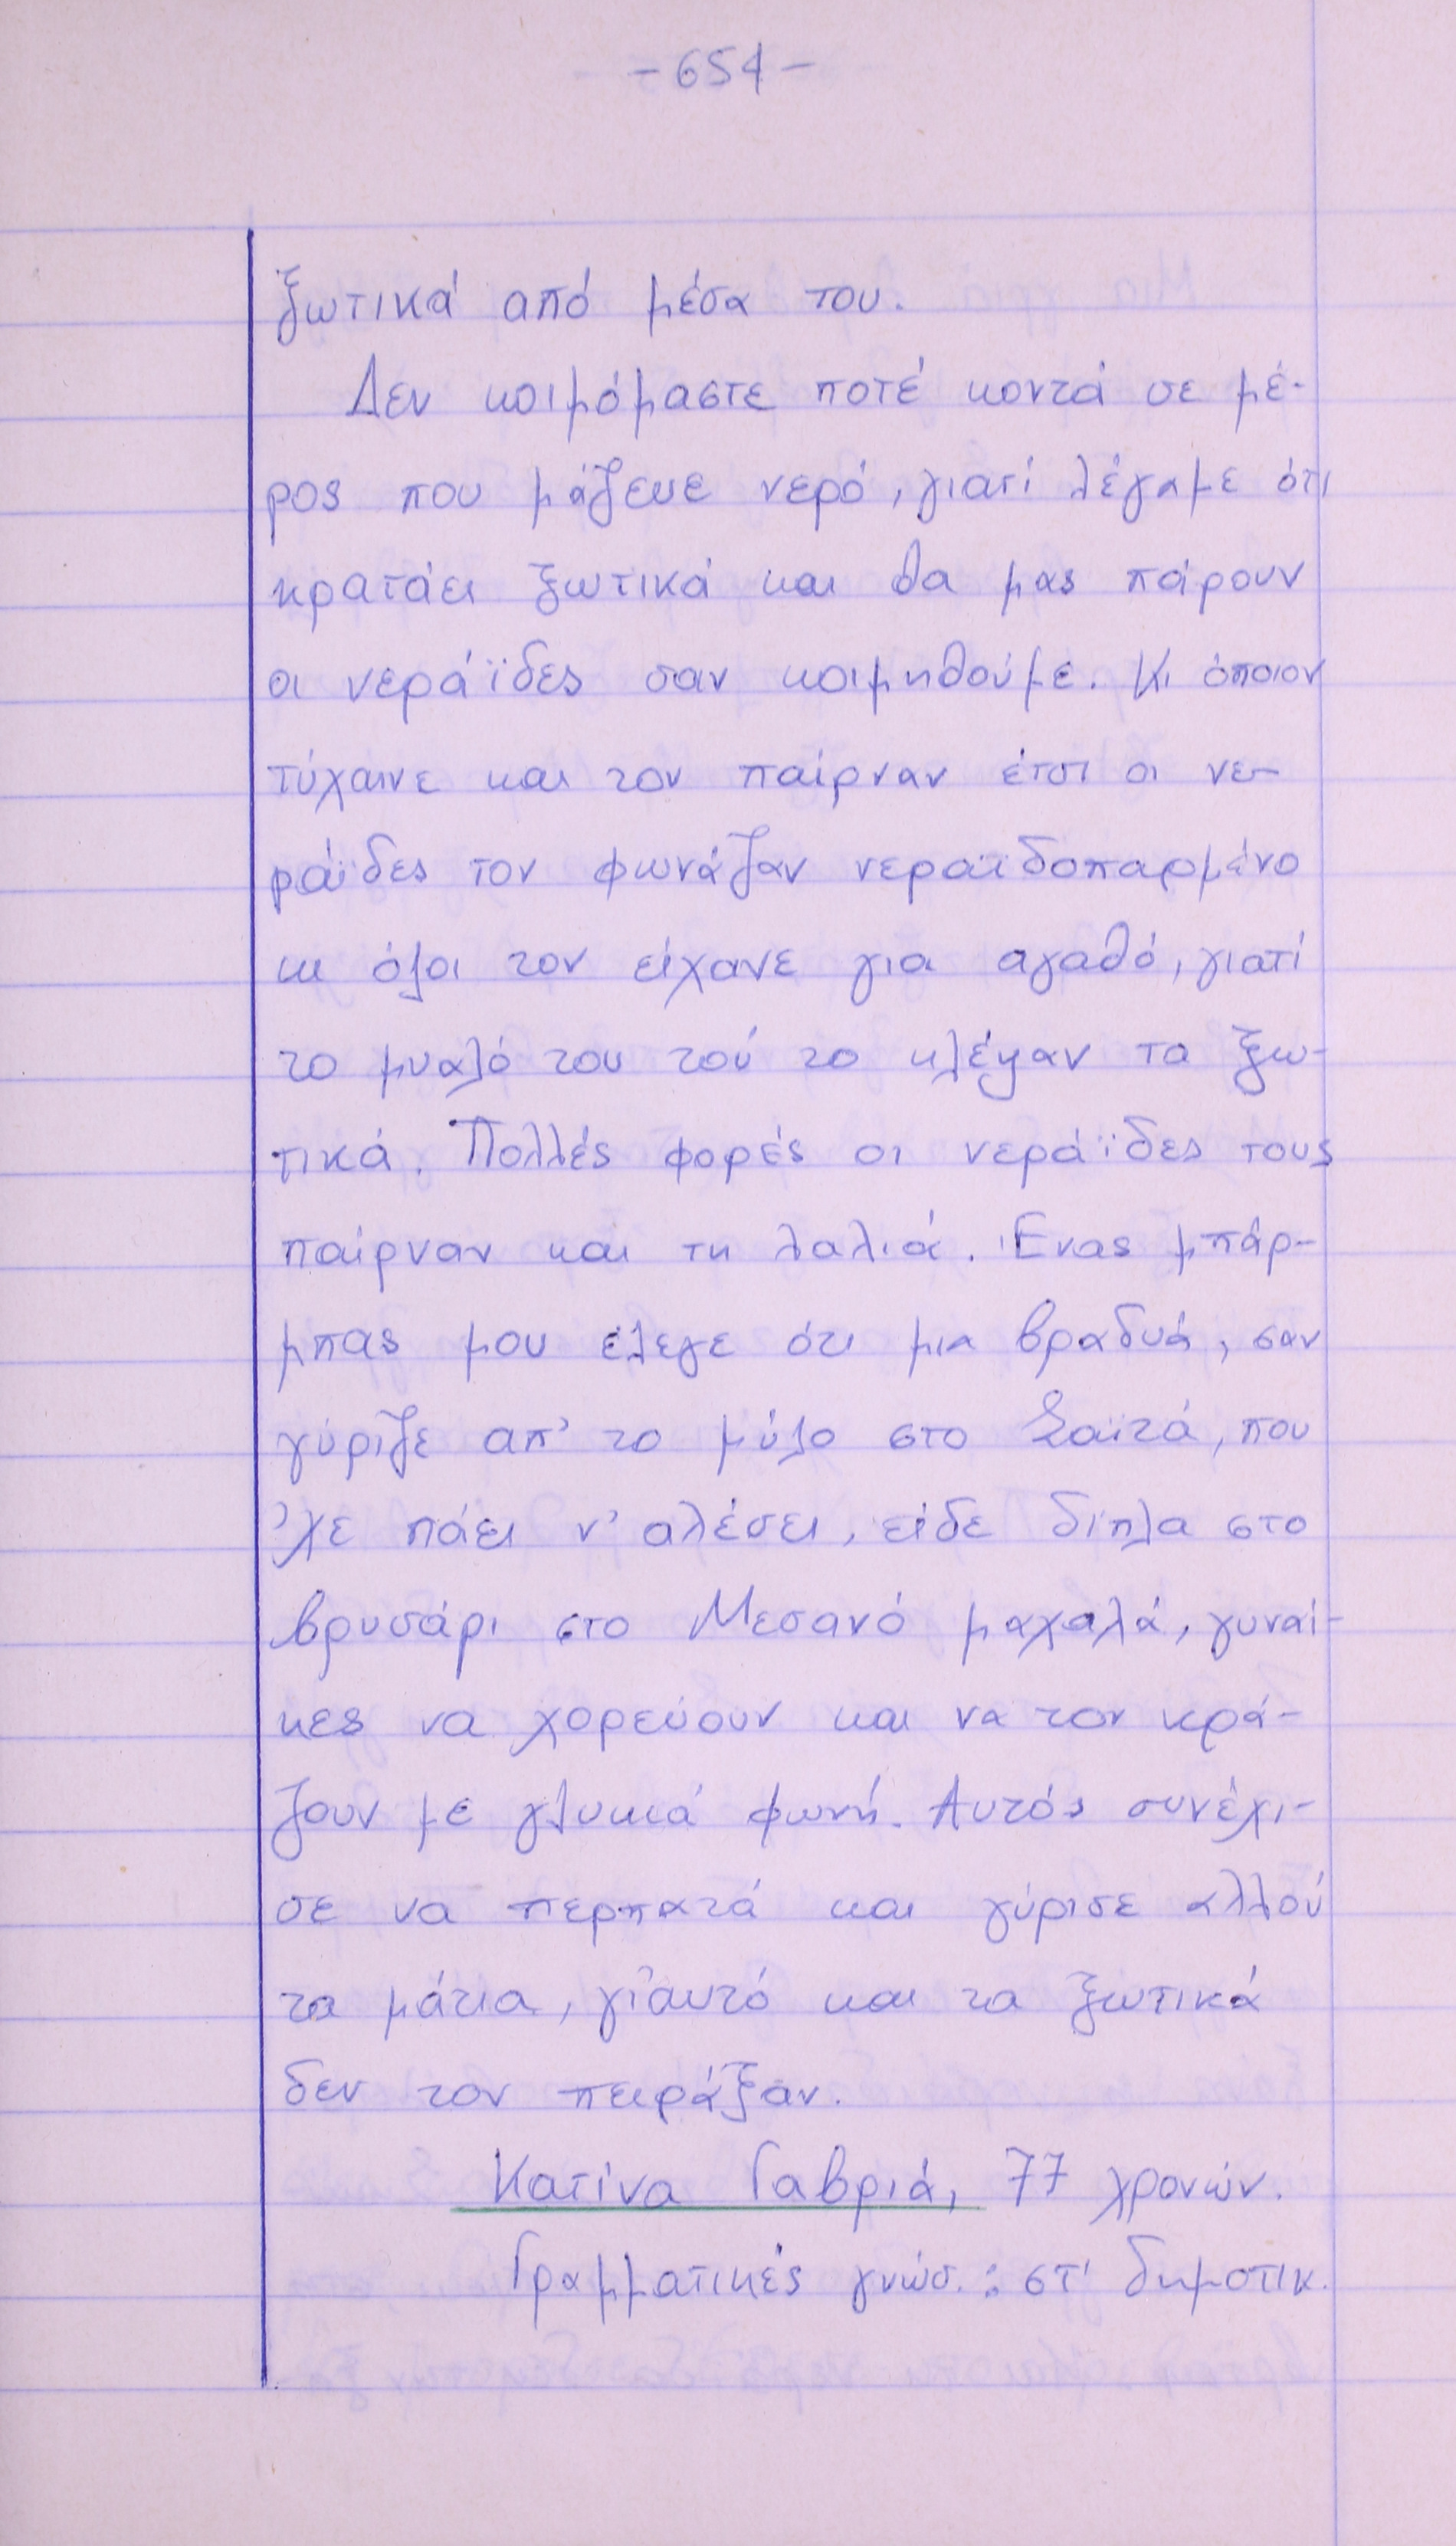 -654-
ξωτικά από μέσα του.
Δεν κοιμόμαστε ποτέ κοντά σε μέ-
ρος που μάζευε νερό, γιατί λέγαμε ότι
κρατάει ξωτικά και θα μας πάρουν
οι νεράϊδες σαν κοιμηθούμε. Κι όποιον
τύχαινε και τον παίρναν έτσι οι νε-
ράϊδες τον φωνάζαν νεραϊδοπαρμένο
κι όλοι τον είχανε για αγαθό, γιατί
το μυαλό του τού το κλέψαν τα ξω-
τικά. Πολλές φορές οι νεράϊδες τους
παίρναν και τη λαλιά. Ένας μπάρ-
μπας μου έλεγε ότι μια βραδυά, σαν
γύριζε απ' το μύλο στο Σαϊτά, που
'χε πάει ν' αλέσει, είδε δίπλα στο
βρυσάρι στο Μεσανό μαχαλά, γυναί-
κες να χορεύουν και να τον κρά-
ζουν με γλυκιά φωνή. Αυτός συνέχι-
σε να περπατά και γύρισε αλλού
τα μάτια, γι'αυτό και τα ξωτικά
δεν τον πειράξαν.
Κατίνα Γαβριά, 77 χρονών.
Γραμματικές γνώσ.: στ' δημοτικ.